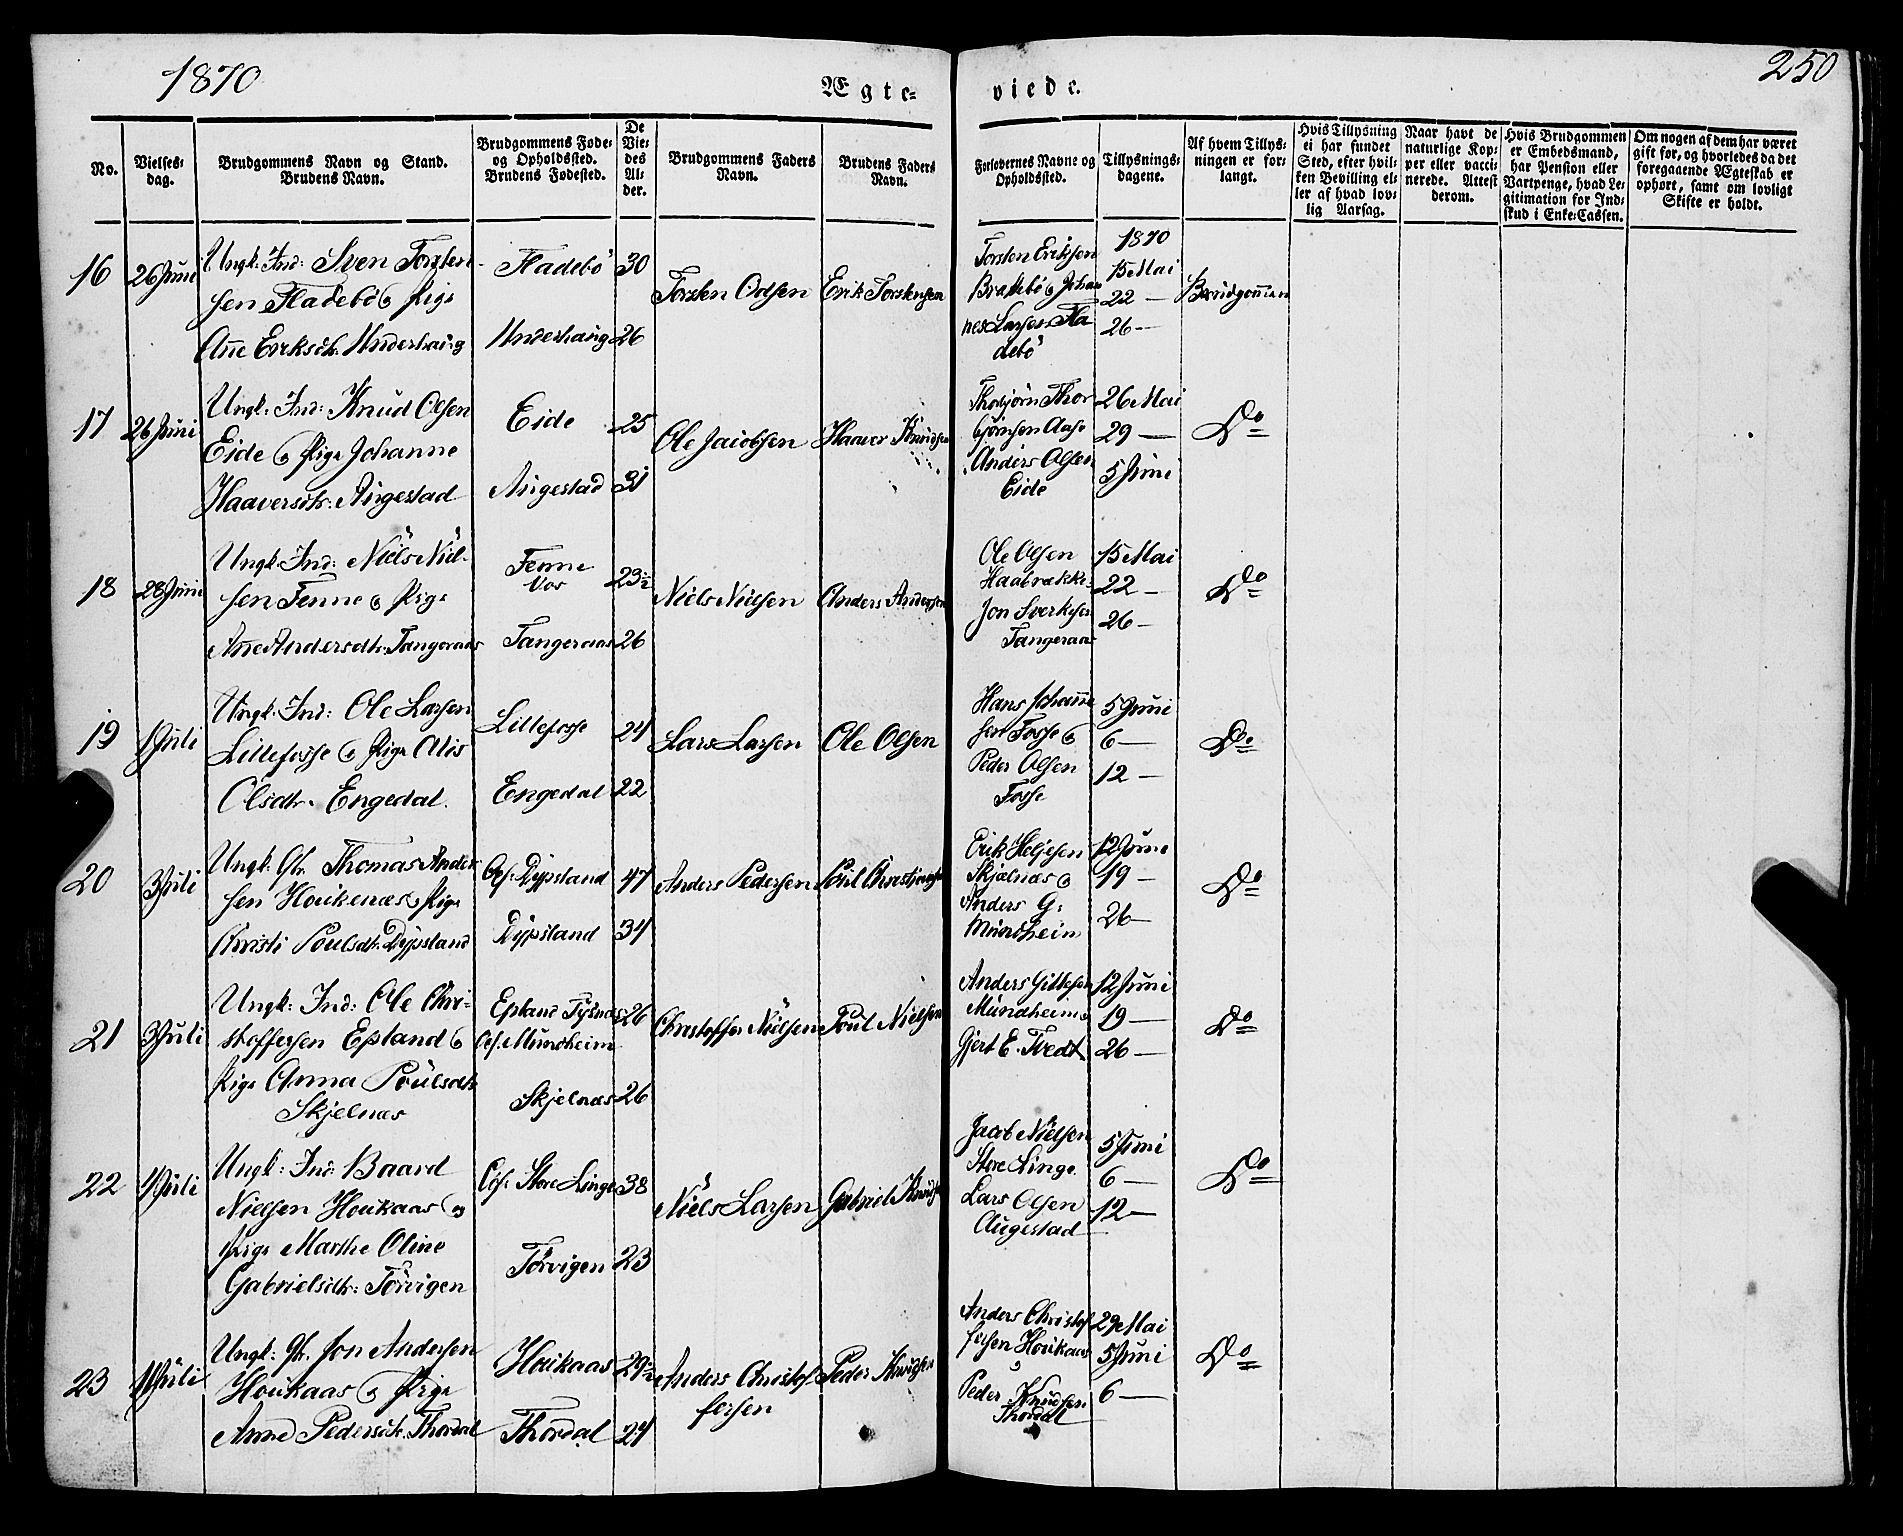 1870
250
Ægte-
viede.
No.
Vielses-
dag.
Brudgommens Navn og Stand.
Brudens Navn.
Brudgommens Føde-
og Opholdssted.
Brudens Fødested.
De
Vie-
des
Al-
der.
Brudgommens Faders
Navn.
Brudens Faders
Navn.
Forlovernes Navne og
Opholdssted.
Tillysnings-
dagene.
Af hvem Tillys-
ningen er for-
langt.
Hvis Tillysning
ei har fundet
Sted, efter hvil-
ken Bevilling el-
ler af hvad lov-
lig Aarsag.
Naar havt de
naturlige Kop-
per eller vacci-
nerede. Attest
derom.
Hvis Brudgommen
er Embedsmand,
har Pension eller
Vartpenge, hvad Le-
gitimation for Ind-
skud i Enke-Cassen.
Om nogen af dem har været
gift før, og hvorledes da det
foregaaende Ægteskab er
ophørt, samt om lovligt
Skifte er holdt.
16
26 Juni
Ungk: Ind: Sven Torsten-
sen Fladebø og Pige
Anne Eriksdtr. Underhaug
Fladebø
Underhaug
30
26
Torsten Odsen
Erik Torstensen
Torsten Eriksen
Johan
nes Larsen Fla
debø
1870
15 Mai
22 —
26 —
Brudgommen
17
26 Juni
Ungk: Ind: Knud Olsen
Eide og Pige Johanne
Haaversdtr: Augestad
Eide
Augestad
25
31
Ole Jacobsen
Haaver Knudsen
Thorbjørn Thor
bjørnsen Aase
Anders Olsen
Eide
26 Mai
29 —
5 Juni
Do
18
28 Juni
Ungk: Ind: Niels Niel-
sen Fenne og Pige
Anne Andersdtr. Tangeraas
Fenne
Vos
Tangeraas
23½
26
Niels Nielsen
Anders Andersen
Ole Olsen
Haabrække
Jon Sverkesen
Tangeraas
15 Mai
22 —
26 —
Do
19
1 Juli
Ungk: Ind: Ole Larsen
Lillefosse og Pige Alis
Olsdtr. Engedal.
Lillefosse
Engedal
24
22
Lars Larsen
Ole Olsen
Hans Johanne
sen Fosse og
Peder Olsen
Fosse
5 Juni
6 —
12 —
Do
20
3 Juli
Ungk: Thomas Ander
sen Houkenæs og Pige
Christi Poulsdtr. Dypsland
Dypsland
Dypsland
47
34
Anders Pedersen
Erik Heljesen
Skjelnæs og
Anders G:
Mundheim
12 Juni
19 —
26 —
Do
21
3 Juli
Ungk: Ind: Ole Chri-
stoffersen Epland og
Pige Anna Poulsdtr.
Skjelnæs
Epland Tysnæs
Mundheim
Skjelnæs
26
26
Christoffer Nielsen
Poul Nielsen
Anders Gittlesen
Mundheim
Gjert E. Tvedt
12 Juni
19 —
26 —
Do
22
4 Juli
Ungk: Ind: Baard
Nielsen Houkaas og
Pige Marthe Oline
Gabrielsdtr: Tørvigen
Store Linge
Tørvigen
38
23
Niels Larsen
Gabriel Knuds
Jacob Nielsen
Store Linge
Lars Olsen
Augestad
5 Juni
6 —
12 —
Do
23
11 Juli
Ungk: Jon Andersen
Houkaas og Pige
Anne Pedersdtr. Thordal
Houkaas
Thordal
29½
24
Anders Christof
fersen
Peder Knudsen
Anders Christof
fersen Houkaas
Peder Knudsen
Thordal
29 Mai
5 Juni
6 —
Do